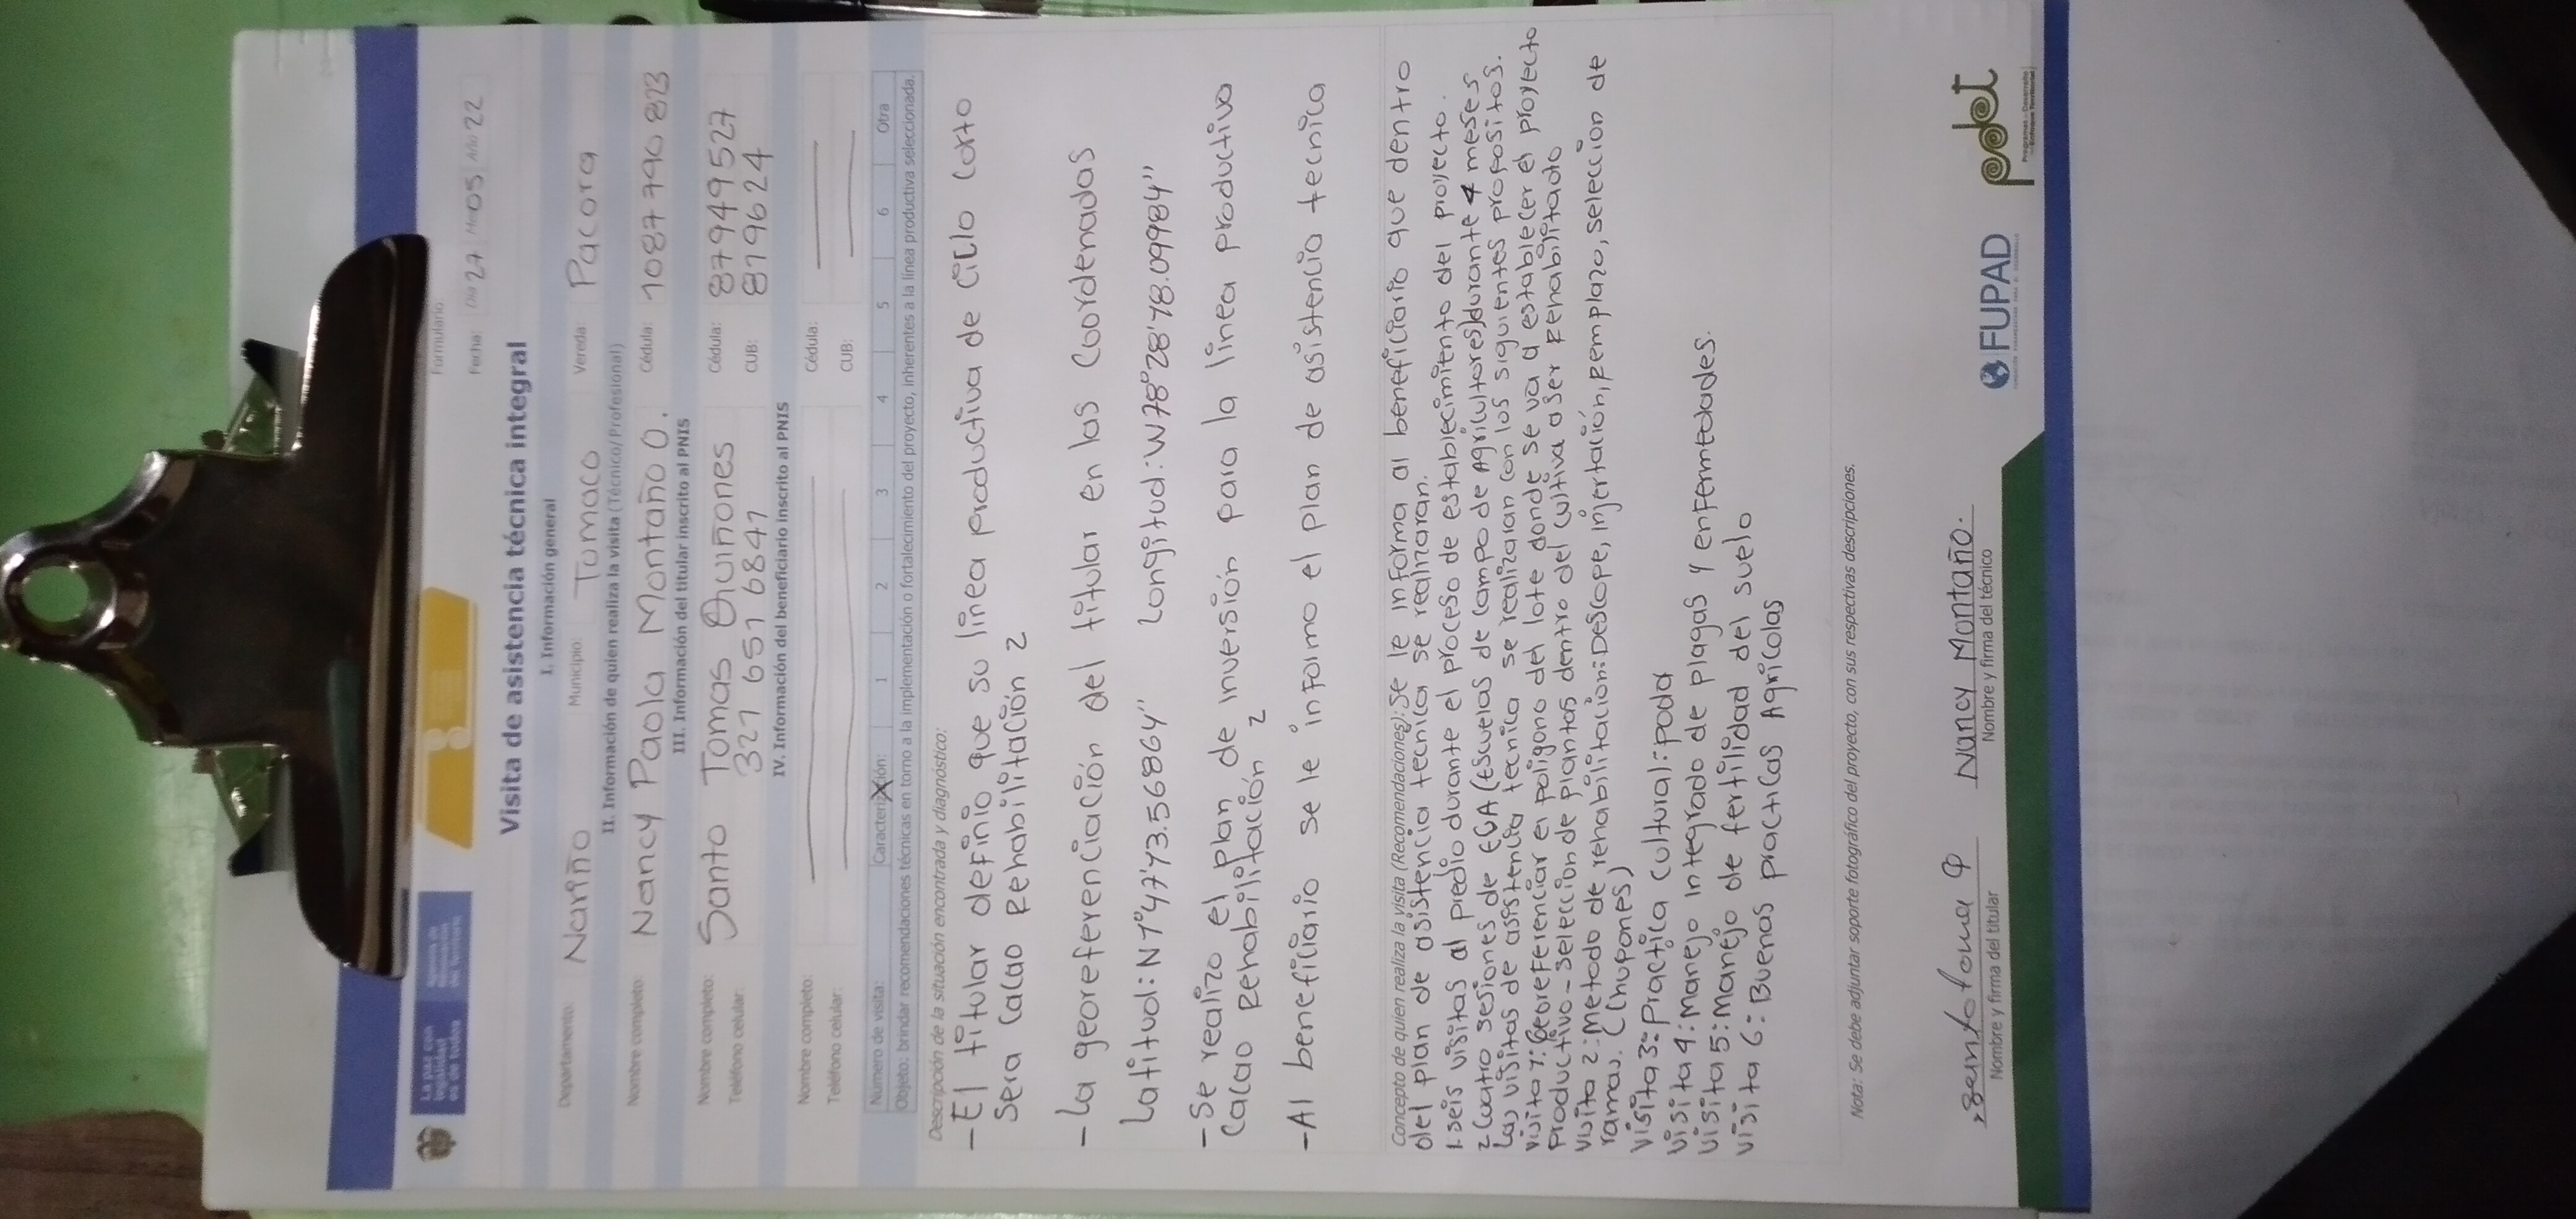 La paz con legalidad es de todos
Formulario:
Fecha: Día 27 Mes 05 Año 22
Visita de asistencia técnica integral
I. Información general
Departamento: Nariño Municipio: Tumaco Vereda: Pacora
II. Información de quien realiza la visita (Técnico/Profesional)
Nombre completo: Nancy Paola Montaño O. Cédula: 1087790823
III. Información del titular inscrito al PNIS
Nombre completo: Santo Tomas Quiñones Cédula: 87949527
Teléfono celular: 321 651 6841 CUB: 8179624
IV. Información del beneficiario inscrito al PNIS
Nombre completo: Cédula:
Teléfono celular: CUB:
Número de visita: Caracterización: 1 2 3 4 5 6 Otra
Objeto: brindar recomendaciones técnicas en torno a la implementación o fortalecimiento del proyecto, inherentes a la línea productiva seleccionada.
Descripción de la situación encontrada y diagnóstico:
- El titular definio que su linea productiva de ciclo corto
Sera Cacao Rehabilitación 2
- La georeferenciación del titular en las Coordenadas
Latitud: N 1°47'43.56864" Longitud: W78°28'78.09984"
- Se realizo el plan de inversión para la linea productiva
Cacao Rehabilitación 2
- Al beneficiario se le informo el plan de asistencia tecnica
Concepto de quien realiza la visita (Recomendaciones): Se le informa al beneficiario que dentro
del plan de asistencia tecnica se realizaran.
1. seis visitas al predio durante el proceso de establecimiento del proyecto.
2 Cuatro sesiones de ECA (Escuelas de campo de Agricultores) durante 4 meses
Las visitas de asistencia tecnica se realizaran con los siguientes propositos.
visita 1: Georeferenciar el poligono del lote donde se va a establecer el proyecto
productivo - seleccion de plantas dentro del cultivo a ser Rehabilitado
visita 2: Metodo de rehabilitacion: Descope, injertación, Remplazo, seleccion de
ramas. (Chupones)
Visita 3: Practica cultural: poda
Visita 4: Manejo integrado de plagas y enfermedades.
visita 5: Manejo de fertilidad del suelo
visita 6: Buenas practicas Agricolas
Nota: Se debe adjuntar soporte fotográfico del proyecto, con sus respectivas descripciones.
Santo toma Q Nancy Montaño.
Nombre y firma del titular Nombre y firma del técnico
FUPAD pdet